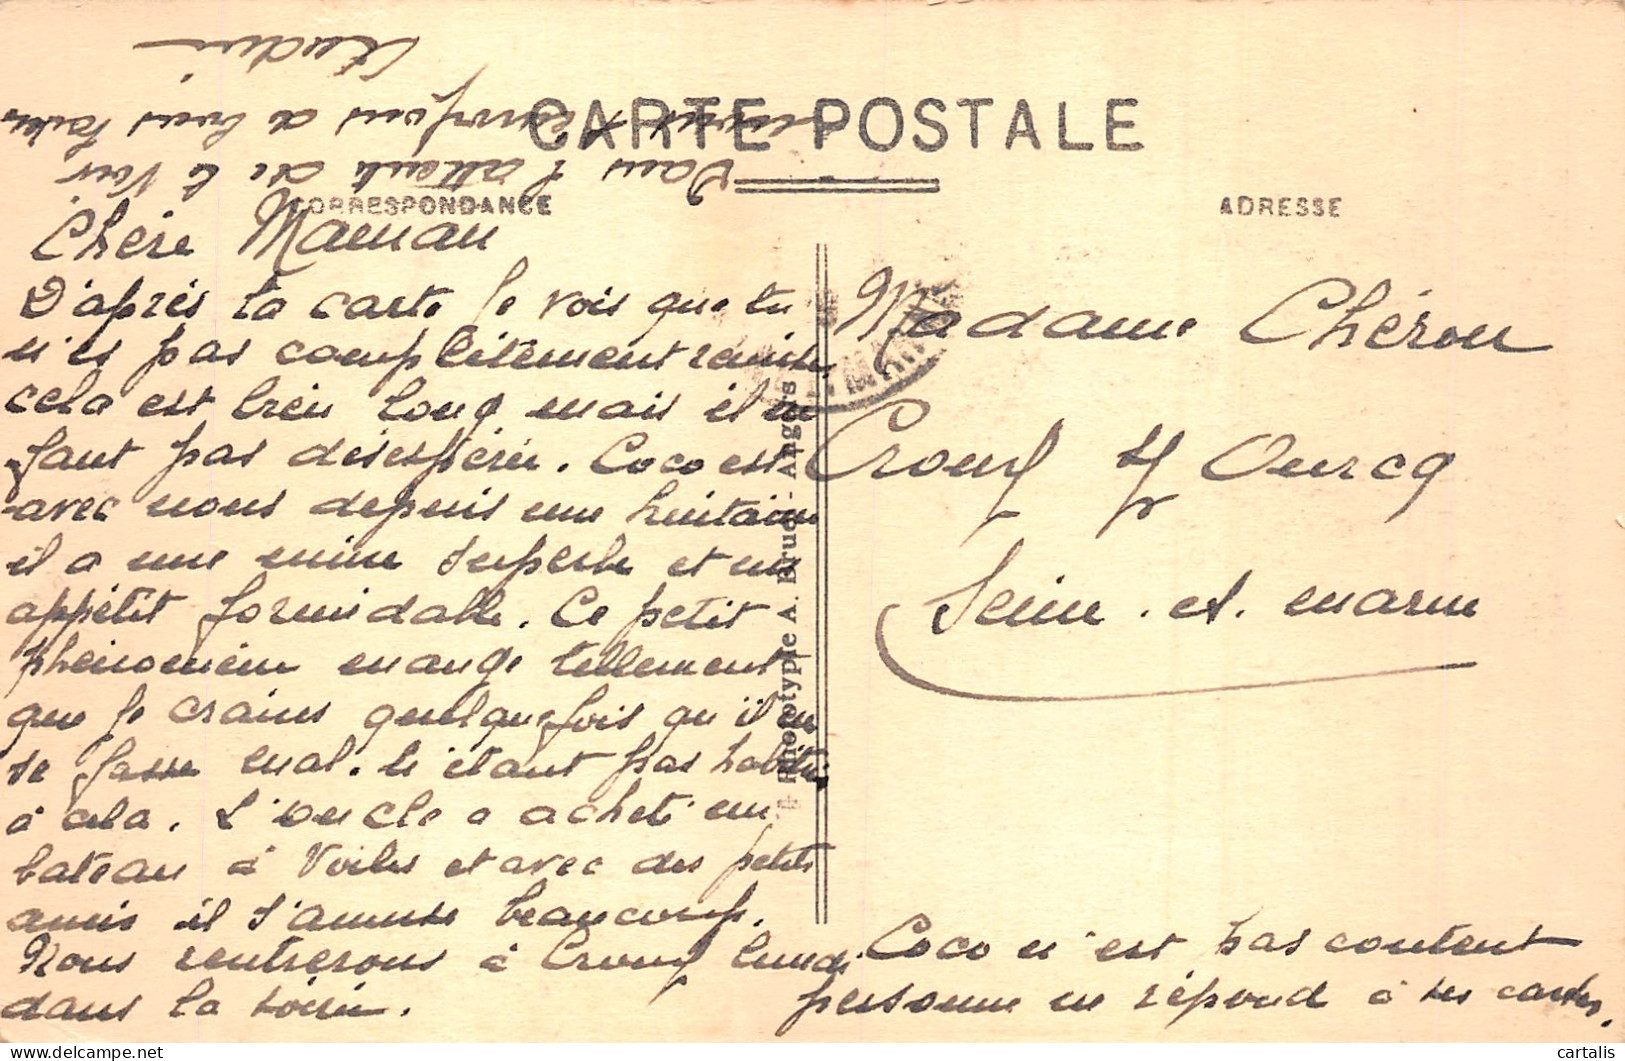 CARTE POSTALE
CORRESPONDANCE
ADRESSE
Chère Maman
D'après ta carte je vois que tu
n'es pas complètement remise
cela est bien long mais il ne
faut pas désespérer. Coco est
avec nous depuis une huitaine
il a une mine superbe et un
appétit formidable. Ce petit
phénomène mange tellement
que je crains quelquefois qu'il ne
se fasse mal. n'étant pas habitué
à cela. L'oncle a acheté un
bateau à voiles et avec des petits
amis il s'amuse beaucoup.
Nous rentrerons à Crouy lundi
dans la soirée.
Dans l'attente de te voir
nous t'envoyons de bons baisers
Madame Chéron
Crouy s/ Ourcq
Seine-et-marne
Coco n'est pas content
personne ne répond à ses cartes.
Phototypie A. Bruel - Angers
cartalis